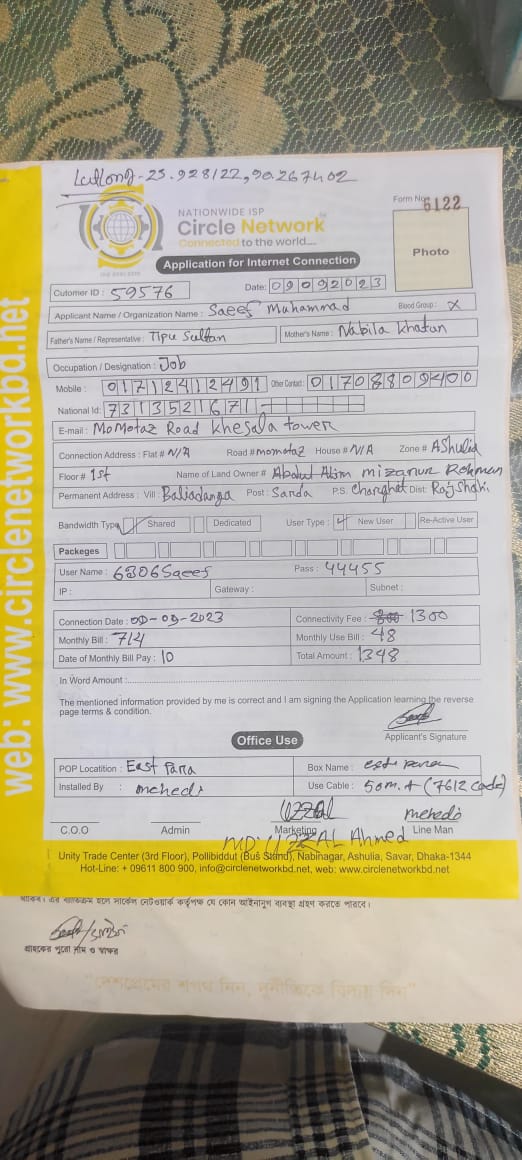 LatLong-23.928122,90.267402
Form No 6122
NATIONWIDE ISP
Circle Network
Connected to the world....
Photo
Application for Internet Connection
Cutomer ID : 59576 Date: 09092023
Applicant Name / Organization Name : Saeef Muhammad Blood Group : X
Father's Name / Representative : Tipu Sultan Mother's Name : Nabila Khatun
Occupation / Designation : Job
Mobile : 01712412491 Other Contact : 01708809400
National Id: 7313521671-
E-mail : Momotaz Road Khesala tower
Connection Address : Flat # N/A Road # momotaz House # N/A Zone # AShulia
Floor # 1st Name of Land Owner # Abdul Alim mizanur Rohman
Permanent Address : Vill : Baliadanga Post : Sarda P.S. Charghat Dist: Rajshahi
Bandwidth Type Shared Dedicated User Type : New User Re-Active User
Packeges
User Name : 6306Saeef Pass : 44455
IP : Gateway : Subnet :
Connection Date : 09-09-2023 Connectivity Fee : 800 1300
Monthly Bill : 714 Monthly Use Bill : 48
Date of Monthly Bill Pay : 10 Total Amount : 1348
In Word Amount :
The mentioned information provided by me is correct and I am signing the Application learning the reverse
page terms & condition.
Applicant's Signature
Office Use
POP Locatition : East Para Box Name : est para
Installed By : mehedi Use Cable : 50m.+ (7612 code)
UZZAL mehedi
C.O.O Admin Marketing Line Man
MD: UZZAL Ahmed
Unity Trade Center (3rd Floor), Pollibiddut (Bus Stand), Nabinagar, Ashulia, Savar, Dhaka-1344
Hot-Line: + 09611 800 900, info@circlenetworkbd.net, web: www.circlenetworkbd.net
web: www.circlenetworkbd.net
হলে সার্কেল নেটওয়ার্ক কর্তৃপক্ষ যে কোন আইনানুগ ব্যবস্থা গ্রহণ করতে পারবে।
গ্রাহকের পুরো নাম ও স্বাক্ষর
"দেশপ্রেমের শপথ নিন, দুর্নীতিকে বিদায় দিন"